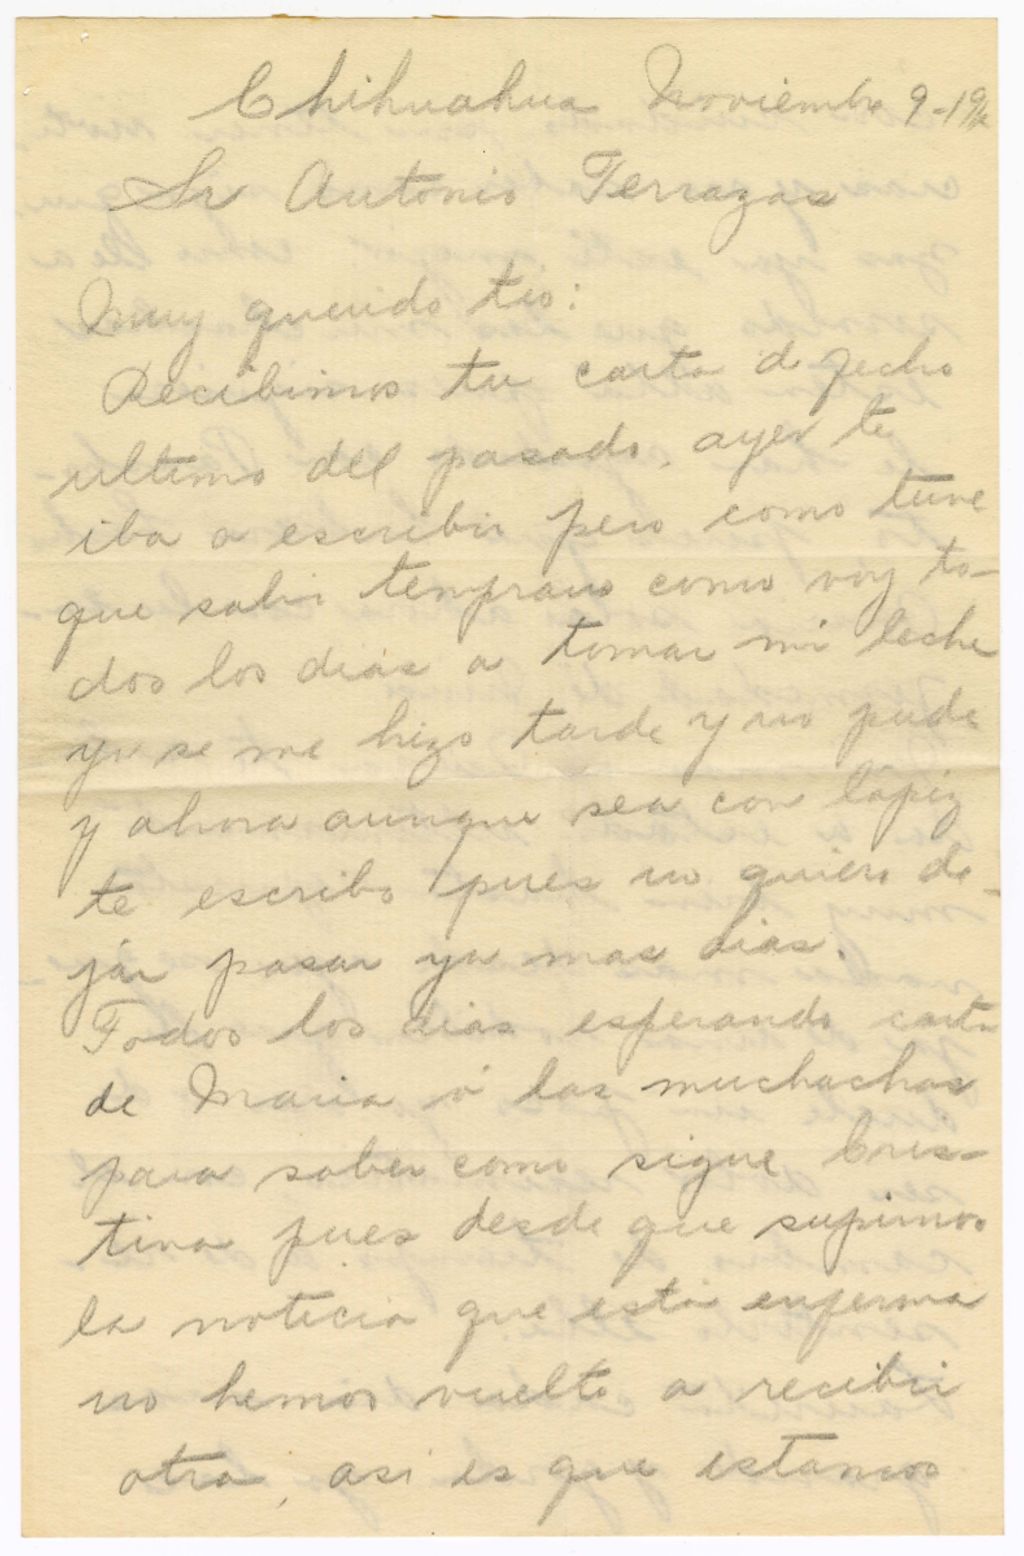 Chihuahua Noviembre 9-19
Sr Antonio Terrazas
Muy querido tio:
Recibimos tu carta de fecha
ultimo del pasado, ayer te
iba a escribir pero como tuve
que salir temprano como voy to-
dos los dias a tomar mi leche
ya se me hizo tarde y no pude
y ahora aunque sea con lápiz
te escribo pues no quiero de-
jar pasar ya mas dias.
Todos los dias esperando carta
de Maria ó las muchachas
para saber como sigue Cris-
tina pues desde que supimos
la noticia que está enferma
no hemos vuelto a recibir
otra, asi es que estamos